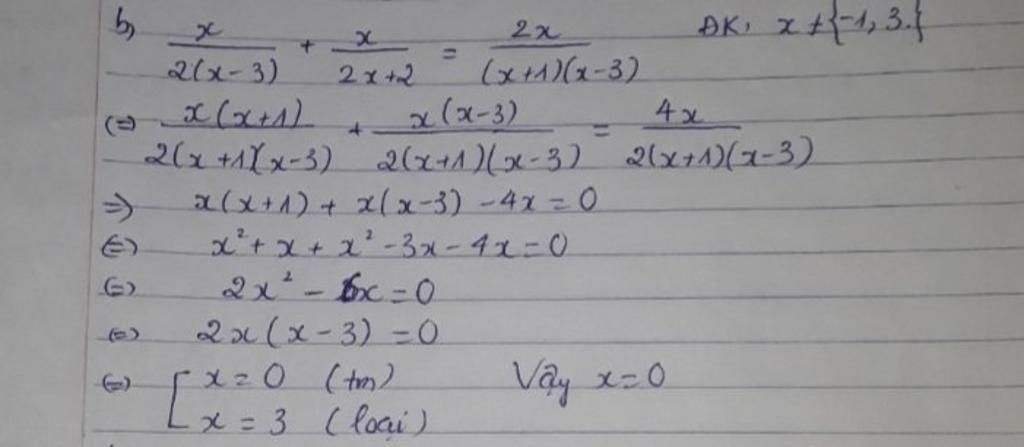 b, x/2(x-3) + x/2x+2 = 2x/(x+1)(x-3) ĐK: x ≠ {-1, 3.}
(=) x(x+1)/2(x+1)(x-3) + x(x-3)/2(x+1)(x-3) = 4x/2(x+1)(x-3)
=> x(x+1) + x(x-3) - 4x = 0
(=) x² + x + x² - 3x - 4x = 0
(=) 2x² - 6x = 0
(=) 2x(x-3) = 0
(=) [ x = 0 (tm) Vậy x = 0
x = 3 (loại)